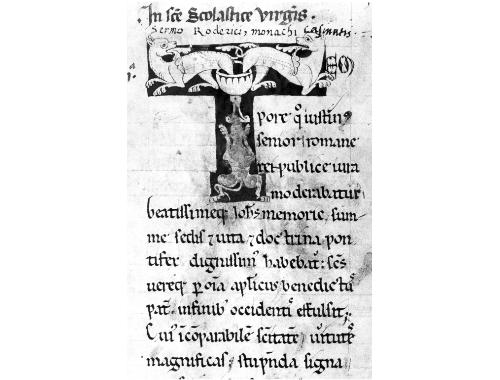 In sc̄e Scolastice Virgīs.
Sermo Roderici, monachi
T
pore qͦ iustinꝰ
senior romane
rei publice iura
moderabatur
beatissimeqꝫ Johīs memorie, sum
me sedis ⁊ uita ⁊ doctrina pon
tifex dignissimꝰ habebat᷑: sc̄s
uereqꝫ ꝑ oīa apl̄icus benedictꝰ
pat̄. infinibꝰ occidentis effulsit;
Cuiꝰ īcōparabilē sc̄itatē, uirtutes
magnificas, stupēda signa